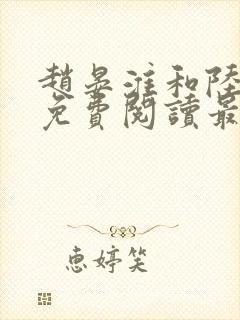 趙晏淮和陸
免費閱讀最
惠婷笑